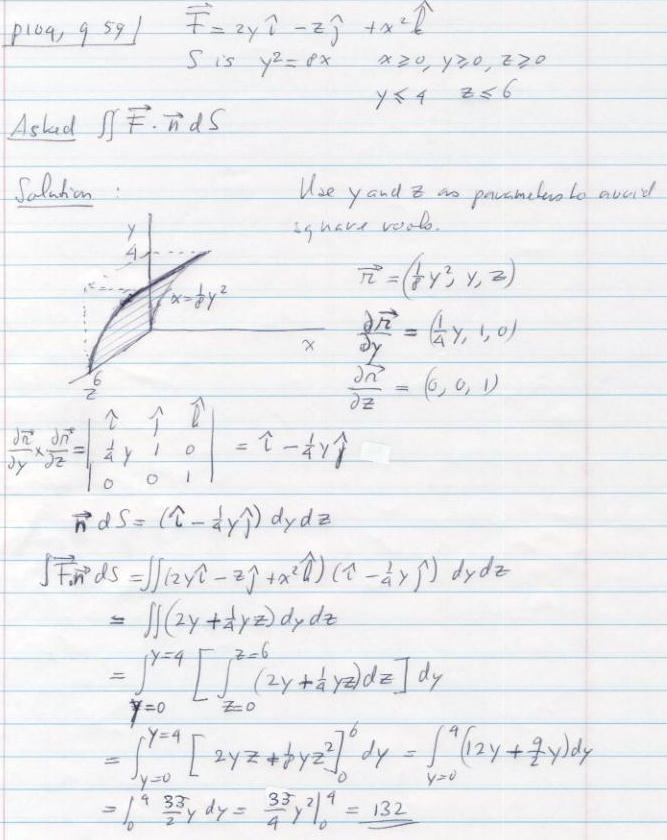 p104, q 59] F⃗ = 2y î - z ĵ + x² k̂
S is y² = 8x x ≥ 0, y ≥ 0, z ≥ 0
y ≤ 4 z ≤ 6
Asked ∬ F⃗ · n⃗ dS
Solution : Use y and z as parameters to avoid
square roots.
y
4
x = 1/8 y²
x
6
z
r⃗ = (1/8 y², y, z)
∂r⃗/∂y = (1/4 y, 1, 0)
∂r⃗/∂z = (0, 0, 1)
∂r⃗/∂y × ∂r⃗/∂z = | î ĵ k̂ |
| 1/4 y 1 0 | = î - 1/4 y ĵ
| 0 0 1 |
n⃗ dS = (î - 1/4 y ĵ) dy dz
∫ F⃗·n⃗ dS = ∬ (2y î - z ĵ + x² k̂) (î - 1/4 y ĵ) dy dz
= ∬ (2y + 1/4 yz) dy dz
= ∫_{y=0}^{y=4} [ ∫_{z=0}^{z=6} (2y + 1/4 yz) dz ] dy
= ∫_{y=0}^{y=4} [ 2yz + 1/8 yz² ]_0^6 dy = ∫_{y=0}^{4} (12y + 9/2 y) dy
= ∫_0^4 33/2 y dy = 33/4 y² |_0^4 = 132